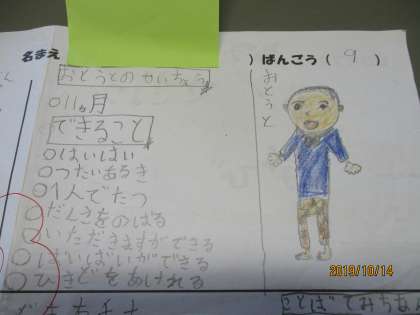 名まえ
)ばんごう( 9 )
おとうとのかいちゅう
○11ヵ月
できること
○はいはい
○つたいあるき
○1人でたつ
○だんさをのぼる
○いただきますができる
○ばいばいができる
○ひきどをあけれる
おとうと
ことばでみちあん
2019/10/14